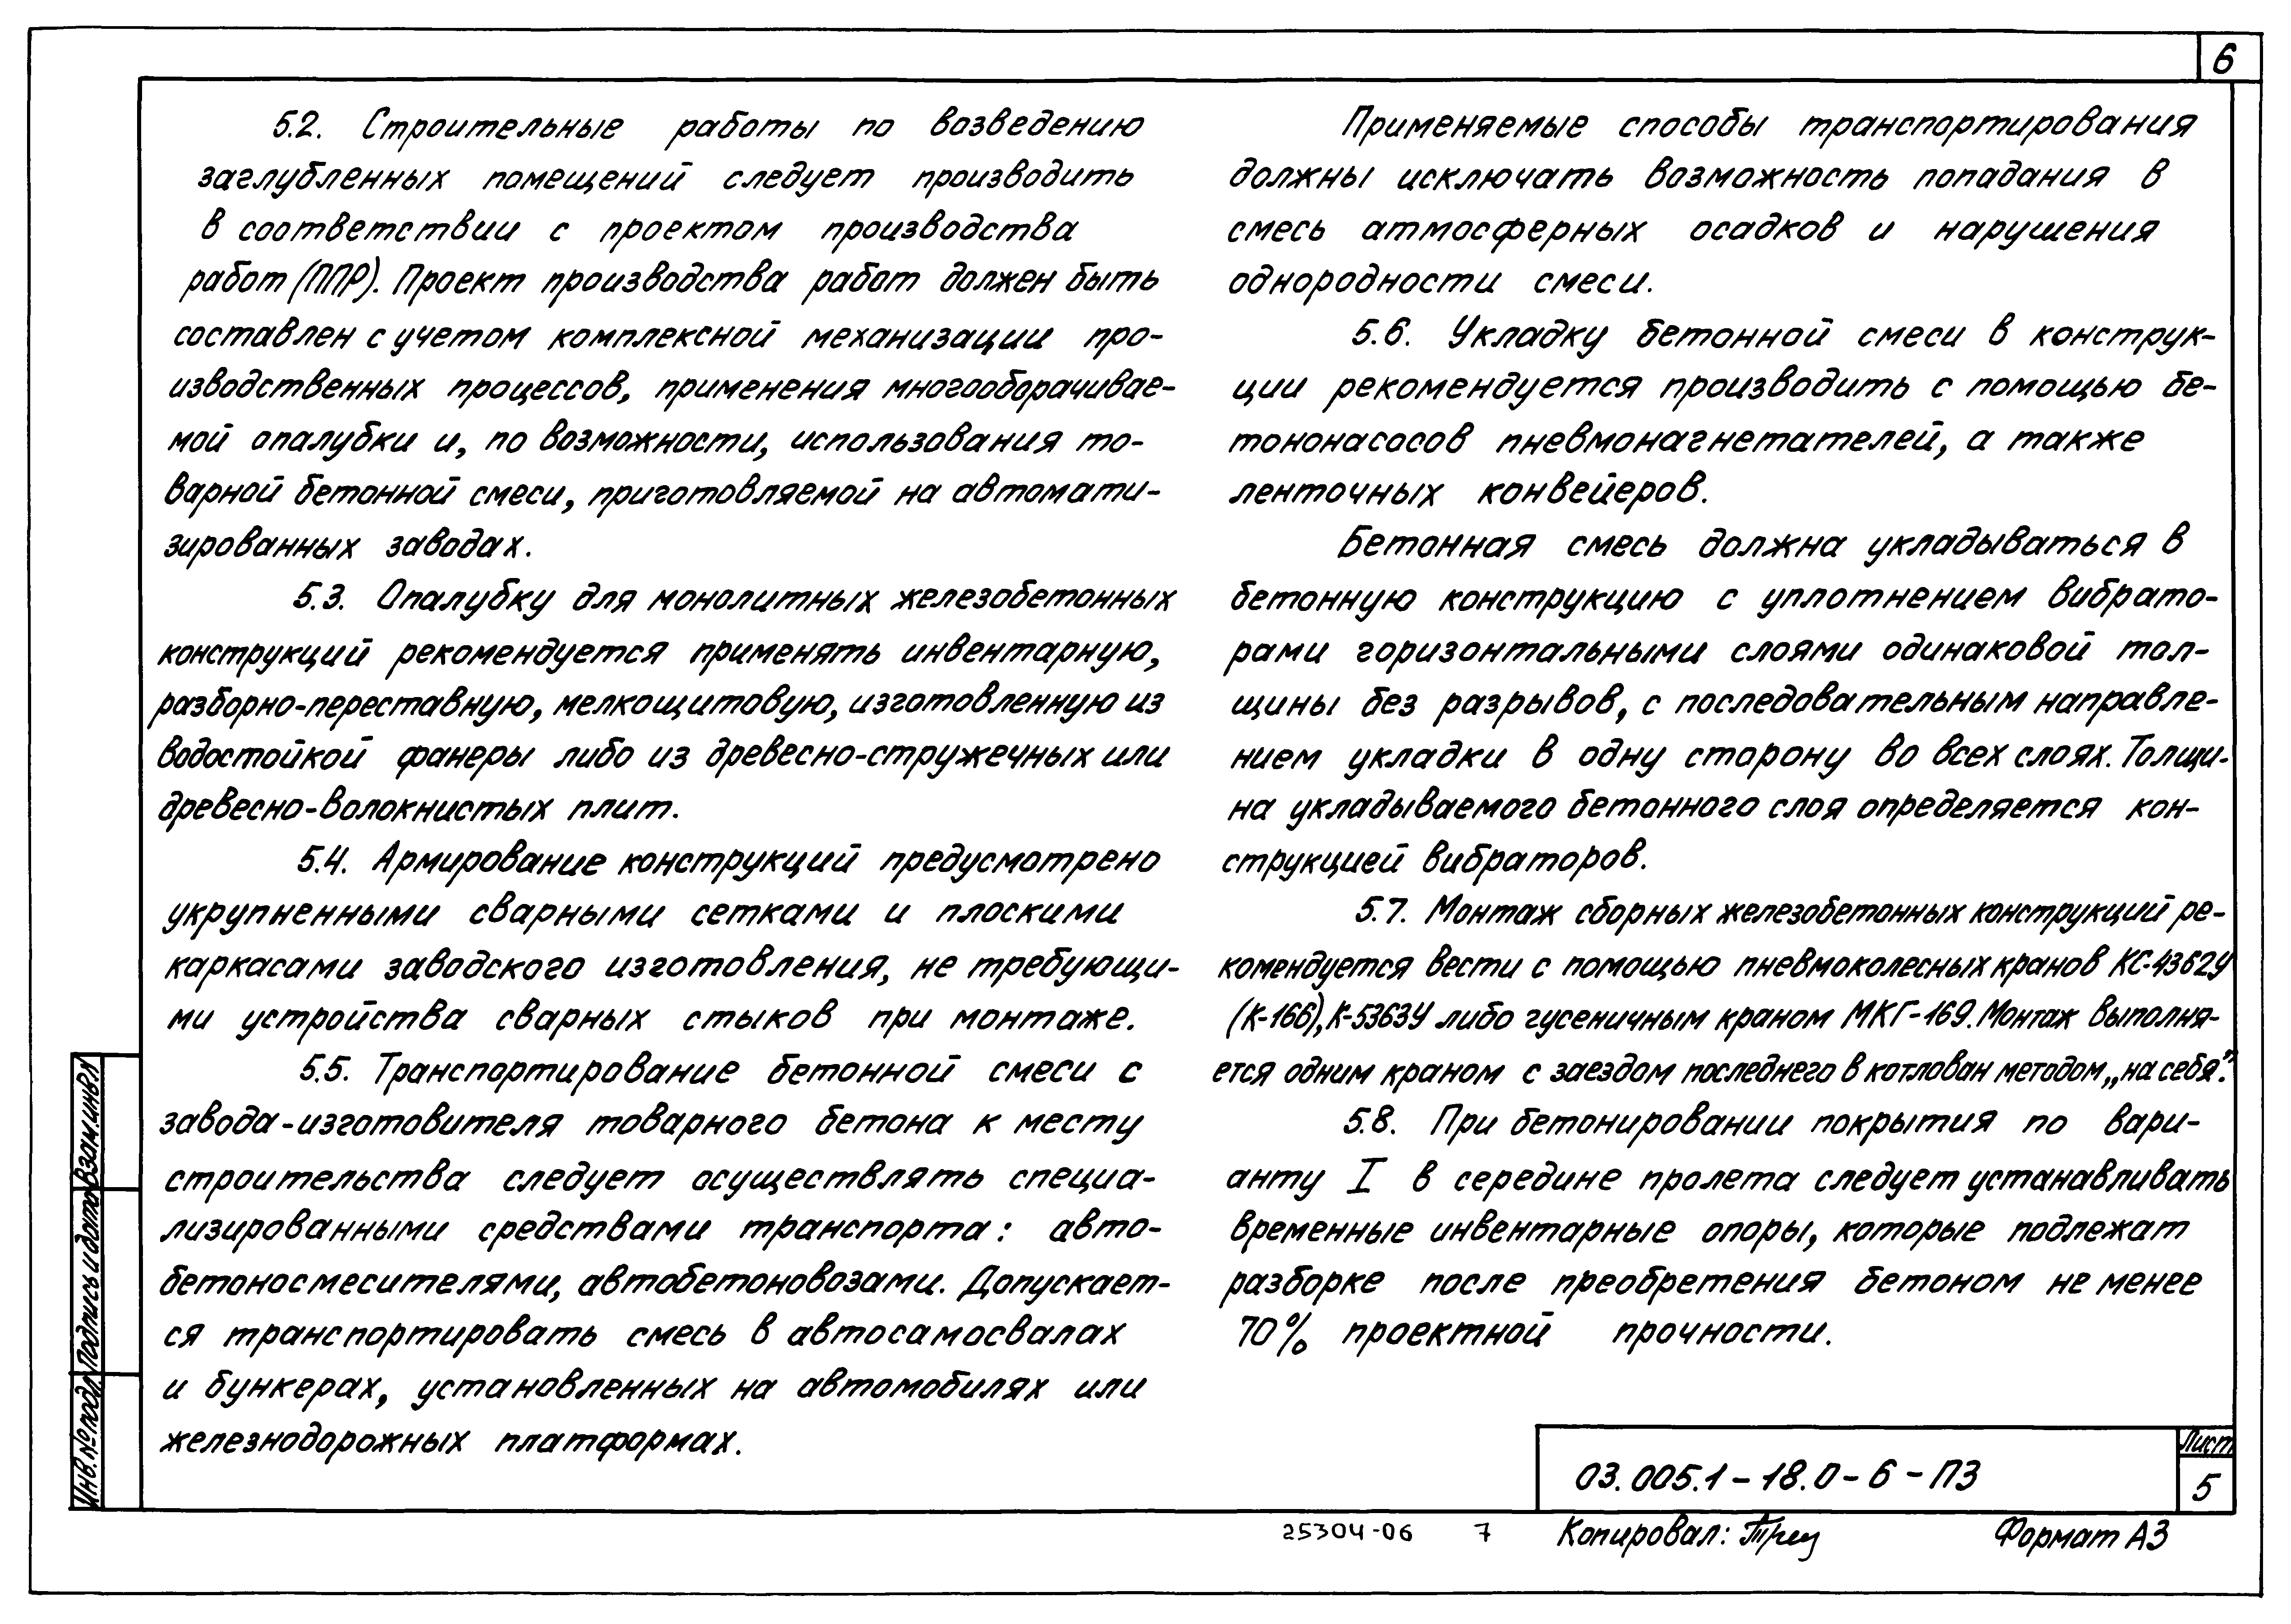 6
5.2. Строительные работы по возведению
заглубленных помещений следует производить
в соответствии с проектом производства
работ (ППР). Проект производства работ должен быть
составлен с учетом комплексной механизации про-
изводственных процессов, применения многооборачивае-
мой опалубки и, по возможности, использования то-
варной бетонной смеси, приготовляемой на автомати-
зированных заводах.
5.3. Опалубку для монолитных железобетонных
конструкций рекомендуется применять инвентарную,
разборно-переставную, мелкощитовую, изготовленную из
водостойкой фанеры либо из древесно-стружечных или
древесно-волокнистых плит.
5.4. Армирование конструкций предусмотрено
укрупненными сварными сетками и плоскими
каркасами заводского изготовления, не требующи-
ми устройства сварных стыков при монтаже.
5.5. Транспортирование бетонной смеси с
завода-изготовителя товарного бетона к месту
строительства следует осуществлять специа-
лизированными средствами транспорта: авто-
бетоносмесителями, автобетоновозами. Допускает-
ся транспортировать смесь в автосамосвалах
и бункерах, установленных на автомобилях или
железнодорожных платформах.
Применяемые способы транспортирования
должны исключать возможность попадания в
смесь атмосферных осадков и нарушения
однородности смеси.
5.6. Укладку бетонной смеси в конструк-
ции рекомендуется производить с помощью бе-
тононасосов пневмонагнетателей, а также
ленточных конвейеров.
Бетонная смесь должна укладываться в
бетонную конструкцию с уплотнением вибрато-
рами горизонтальными слоями одинаковой тол-
щины без разрывов, с последовательным направле-
нием укладки в одну сторону во всех слоях. Толщи-
на укладываемого бетонного слоя определяется кон-
струкцией вибраторов.
5.7. Монтаж сборных железобетонных конструкций ре-
комендуется вести с помощью пневмоколесных кранов КС-4362У
(К-166), К-5363У либо гусеничным краном МКГ-169. Монтаж выполня-
ется одним краном с заездом последнего в котлован методом „на себя".
5.8. При бетонировании покрытия по вари-
анту I в середине пролета следует устанавливать
временные инвентарные опоры, которые подлежат
разборке после преобретения бетоном не менее
70% проектной прочности.
Инв.№подл. Подпись и дата Взам.инв.л
03.005.1-18.0-6-ПЗ
Лист
5
25304-06 7 Копировал: Формат А3